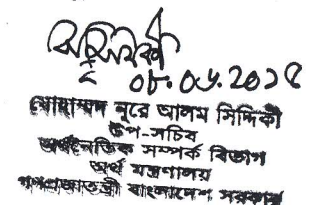 ০৮.০৬.২০১৫
মোহাম্মদ নূরে আলম সিদ্দিকী
উপ-সচিব
অর্থনৈতিক সম্পর্ক বিভাগ
অর্থ মন্ত্রণালয়
গণপ্রজাতন্ত্রী বাংলাদেশ সরকার